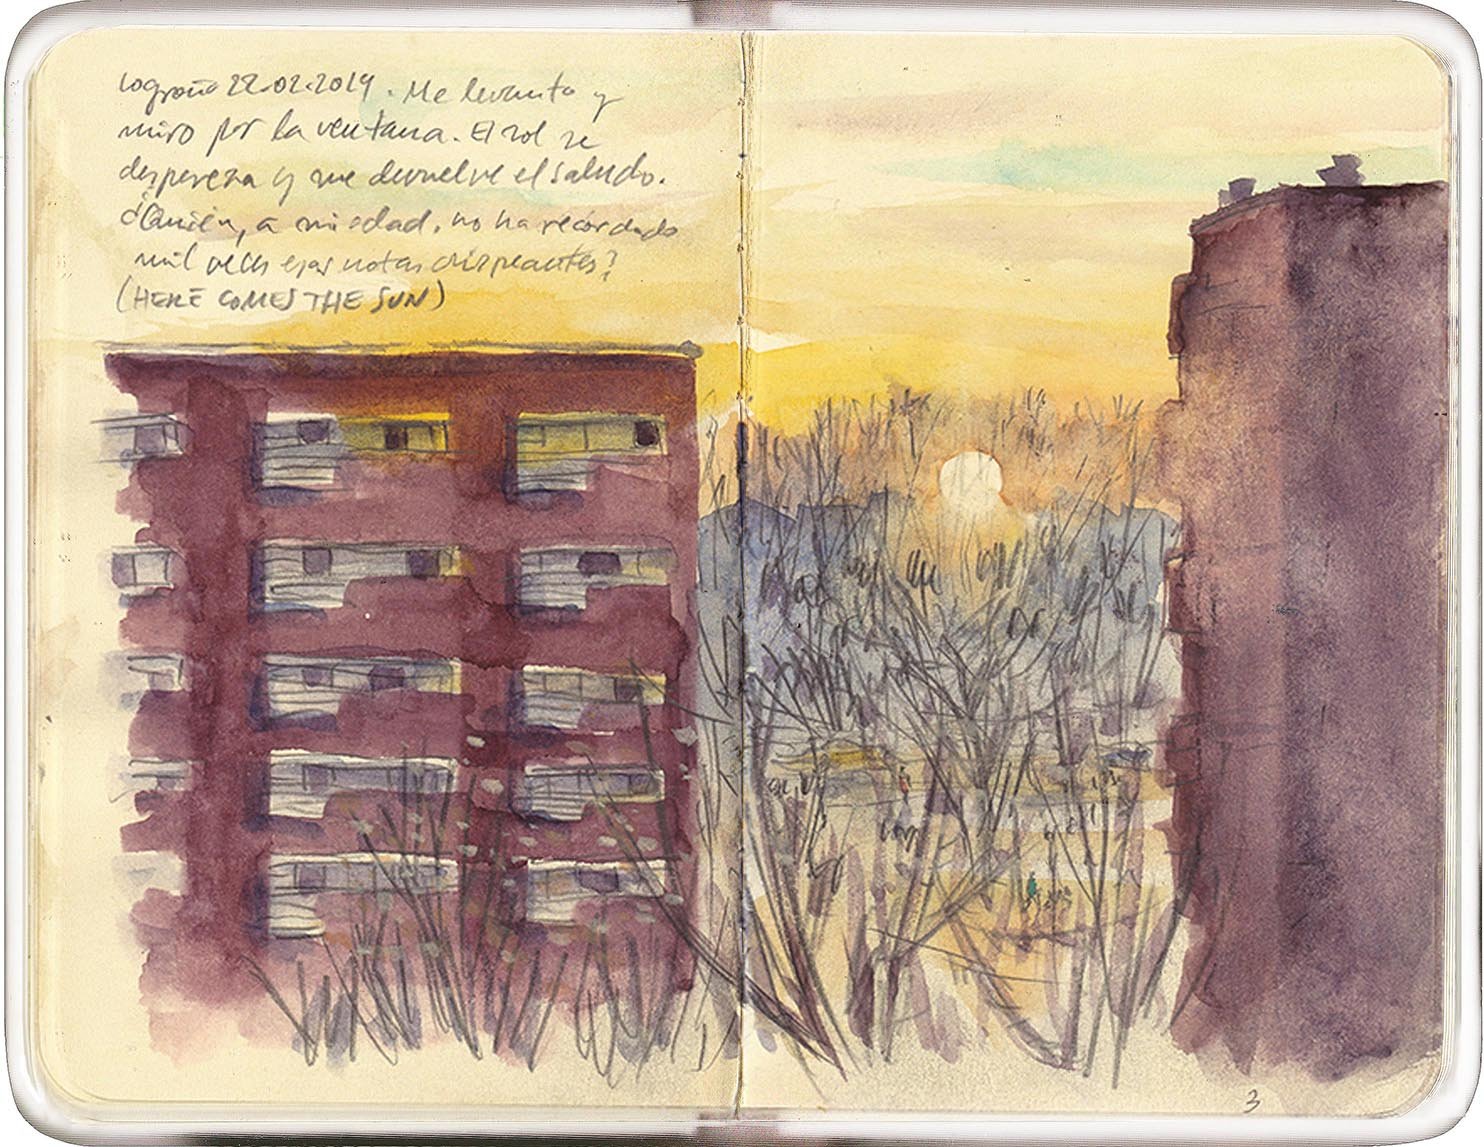 Logroño 22.02.2019. Me levanto y
miro por la ventana. El sol se
despereza y me devuelve el saludo.
¿Quién, a mi edad, no ha recordado
mil veces esas notas chispeantes?
(HERE COMES THE SUN)
3